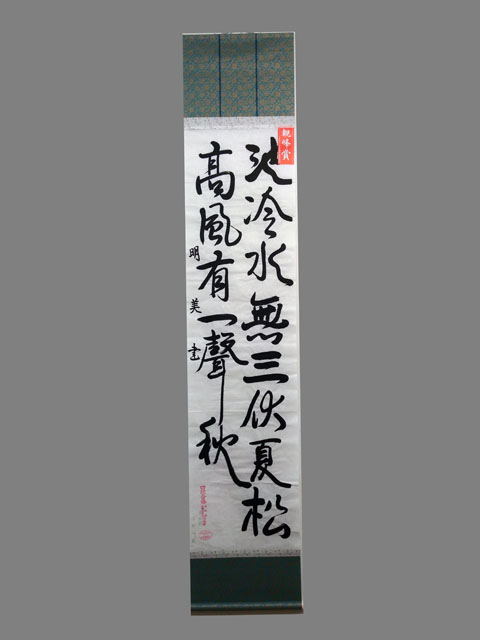 親峰賞
池冷水無三伏夏松
高風有一聲秋
明美書